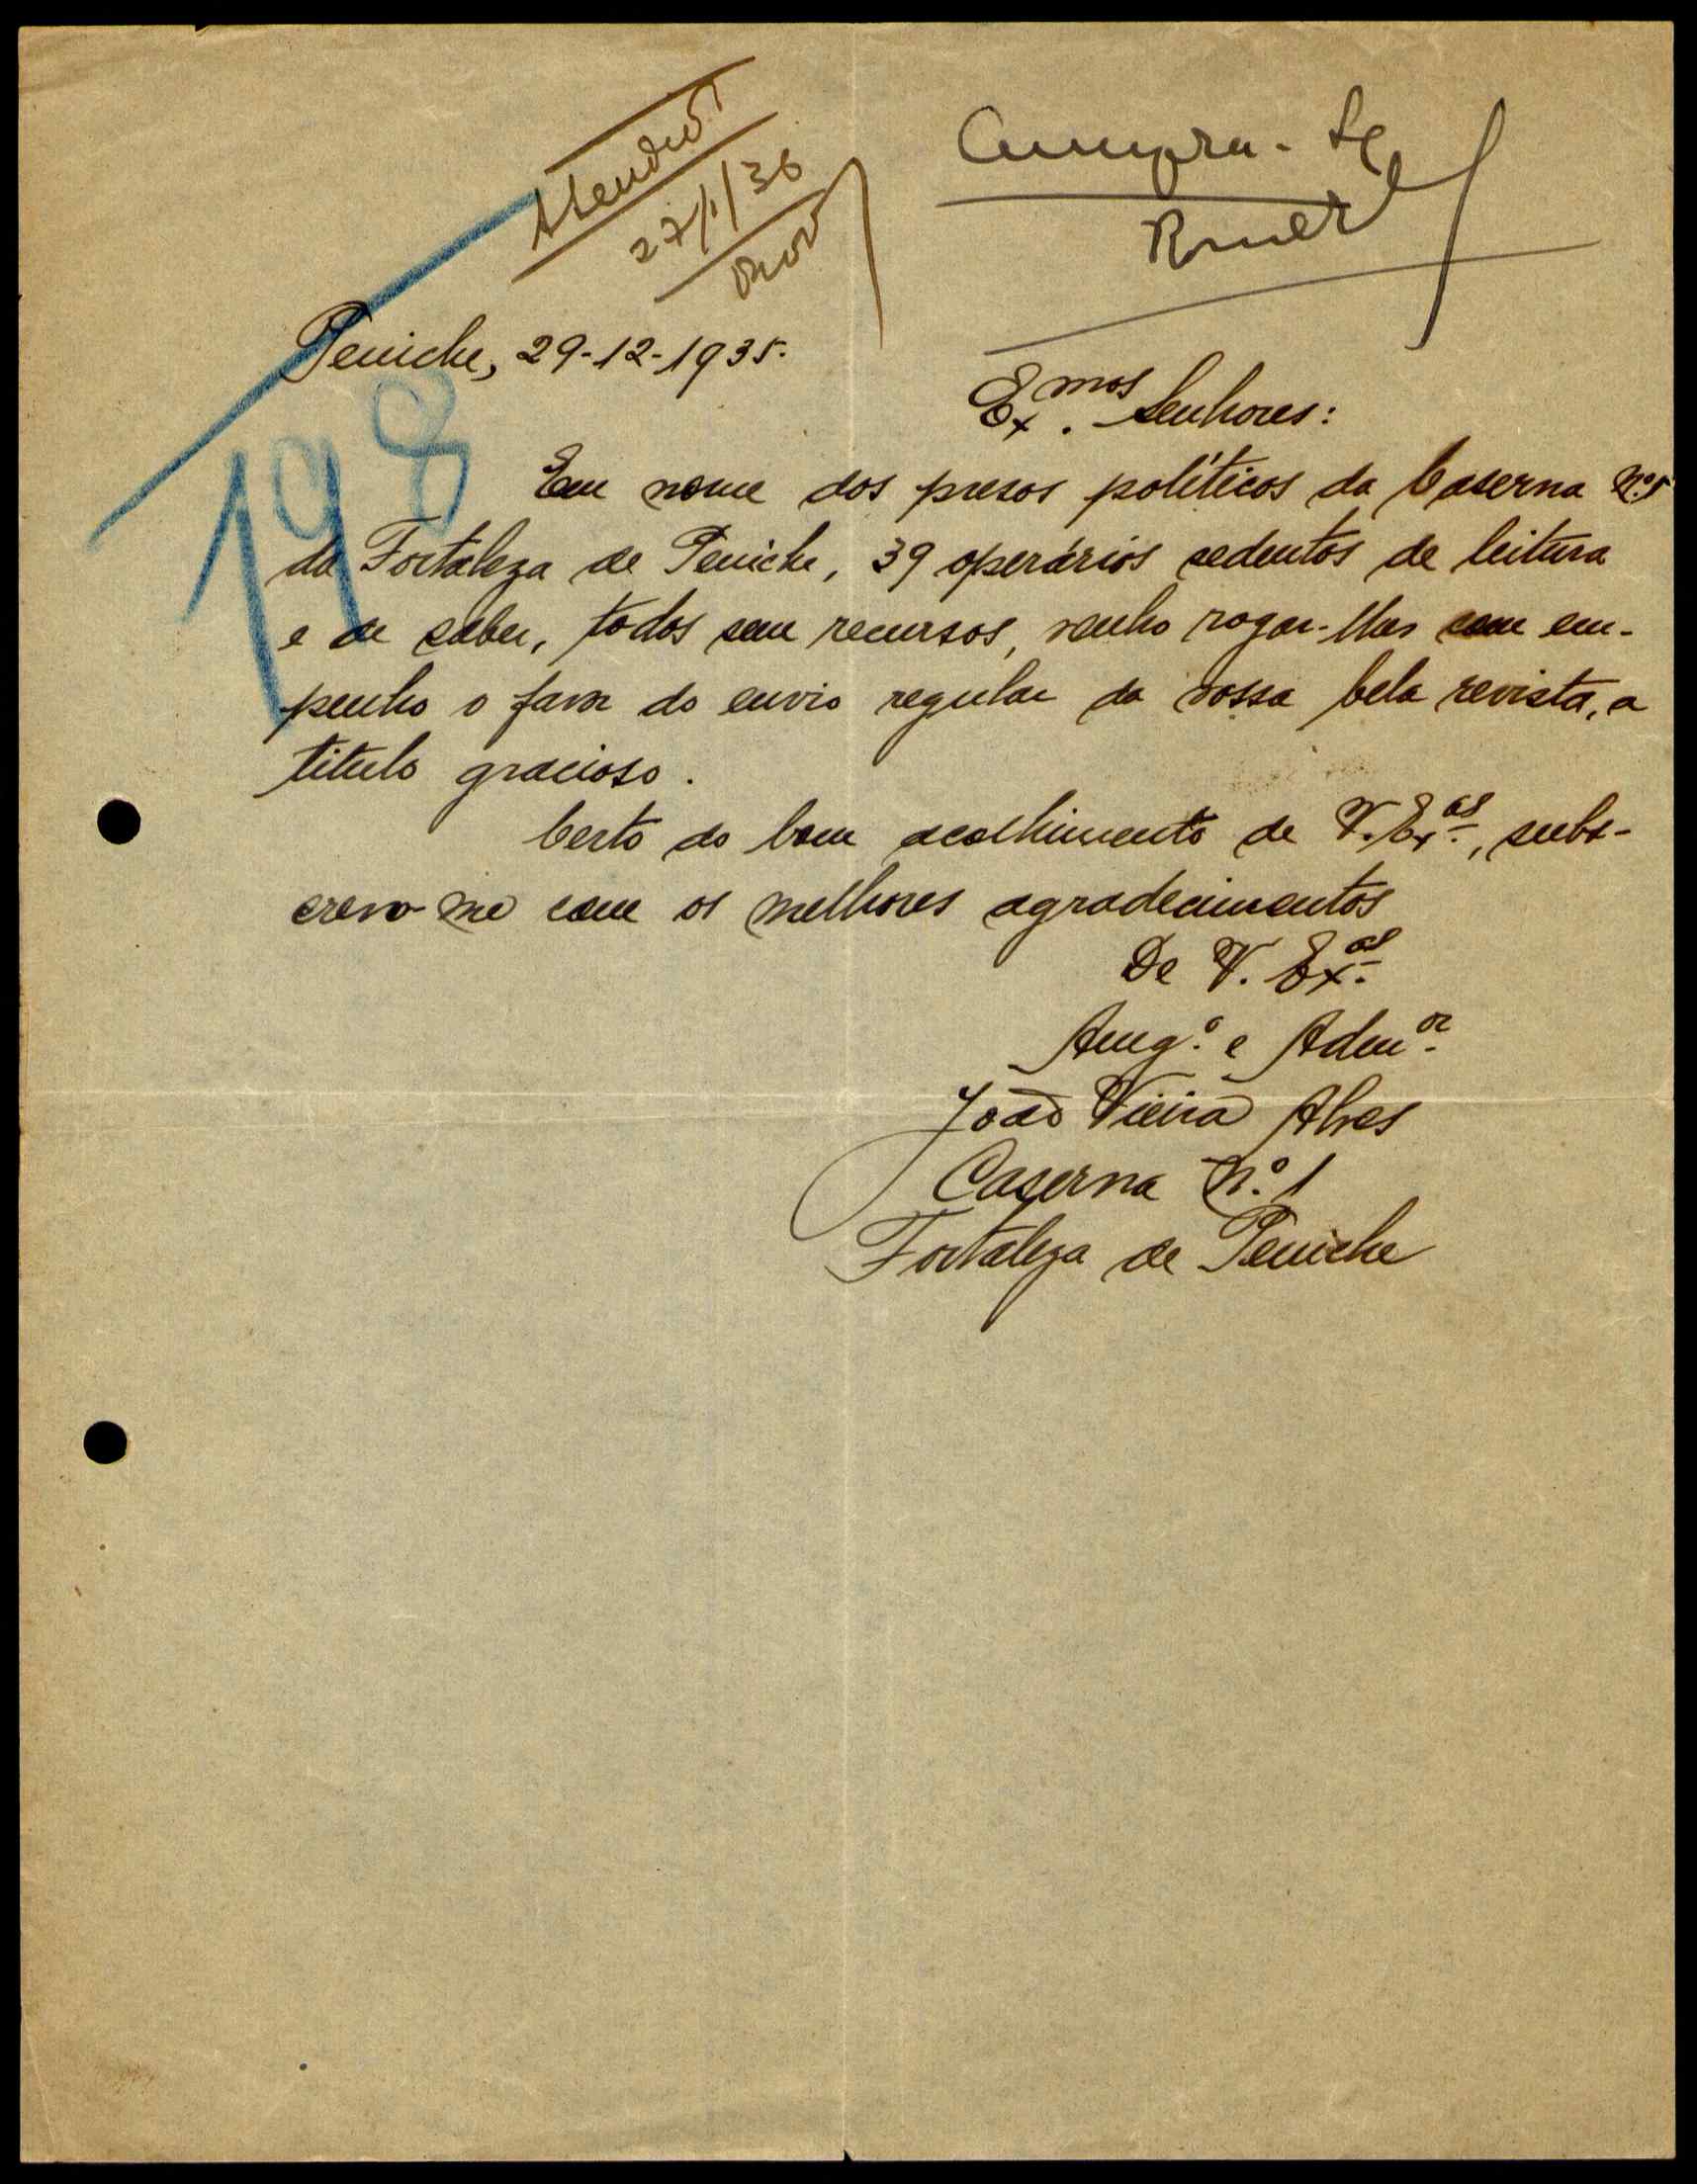 Atendido
27/1/36
Cumpra-se
Peniche, 29-12-1935.
Ex.mos Senhores:
198
Em nome dos presos políticos da Caserna N.º 1
da Fortaleza de Peniche, 39 operários sedentos de leitura
e de saber, todos sem recursos, venho rogar-lhes com em-
penho o favor do envio regular da vossa bela revista, a
titulo gracioso.
Certo do bom acolhimento de V. Ex.as, subs-
crevo-me com os melhores agradecimentos
De V. Ex.as
Amg.º e Adm.or
João Vieira Alves
Caserna N.º 1
Fortaleza de Peniche